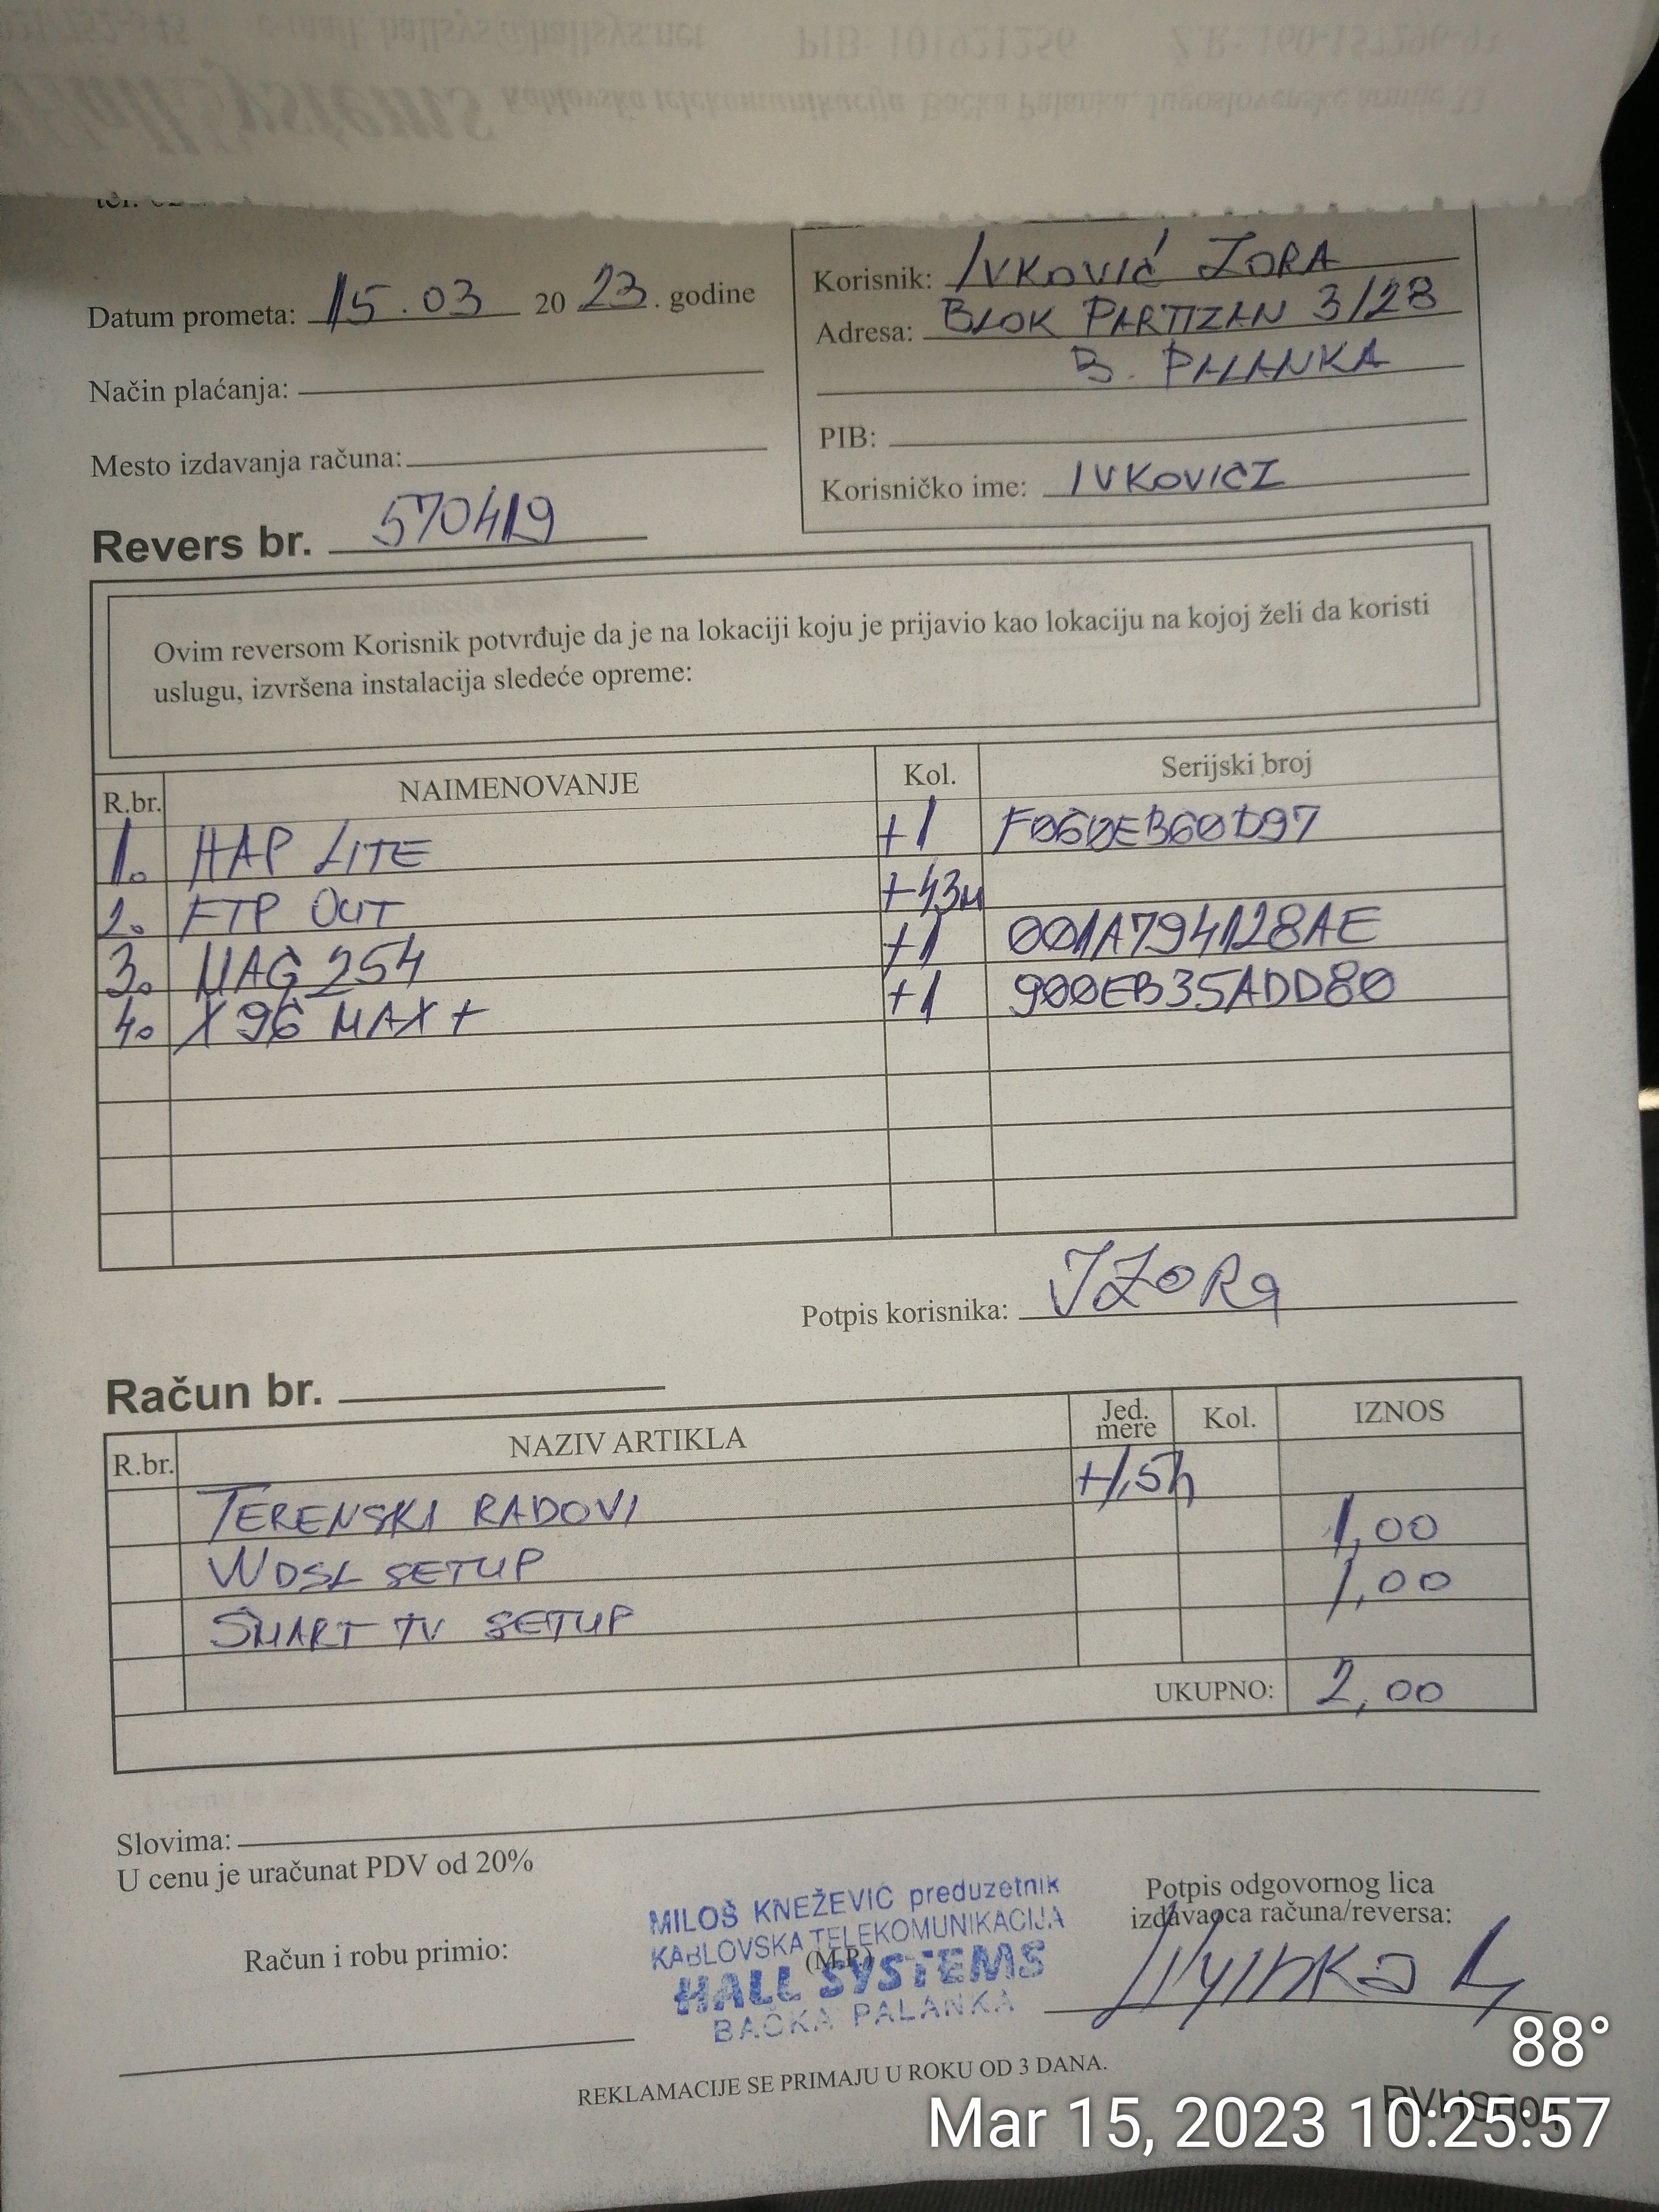 021/752-545 e-mail: hallsys@hallsys.net PIB: 101921256 Ž.R: 160-157296-93
Hall Systems Kablovska telekomunikacija Bačka Palanka, Jugoslovenske armije 33
tel.
Datum prometa: 15.03 2023. godine
Korisnik: IVKOVIĆ ZORA
Adresa: BLOK PARTIZAN 3/28
B. PALANKA
Način plaćanja:
PIB:
Mesto izdavanja računa:
Korisničko ime: IVKOVICZ
Revers br. 570419
Ovim reversom Korisnik potvrđuje da je na lokaciji koju je prijavio kao lokaciju na kojoj želi da koristi
uslugu, izvršena instalacija sledeće opreme:
R.br. NAIMENOVANJE Kol. Serijski broj
1. HAP LITE +1 F060EB60D97
2. FTP OUT +43m
3. MAG 254 +1 001A794128AE
4. X96 MAX+ +1 900EB35ADD80
Potpis korisnika: IZORa
Račun br.
R.br. NAZIV ARTIKLA Jed. mere Kol. IZNOS
TERENSKI RADOVI +1,5h
WDSL SETUP 1,00
SMART TV SETUP 1,00
UKUPNO: 2,00
Slovima:
U cenu je uračunat PDV od 20%
Račun i robu primio:
MILOŠ KNEŽEVIĆ preduzetnik
KABLOVSKA TELEKOMUNIKACIJA
(M.P.)
HALL SYSTEMS
BAČKA PALANKA
Potpis odgovornog lica
izdavaoca računa/reversa:
REKLAMACIJE SE PRIMAJU U ROKU OD 3 DANA.
88°
Mar 15, 2023 10:25:57